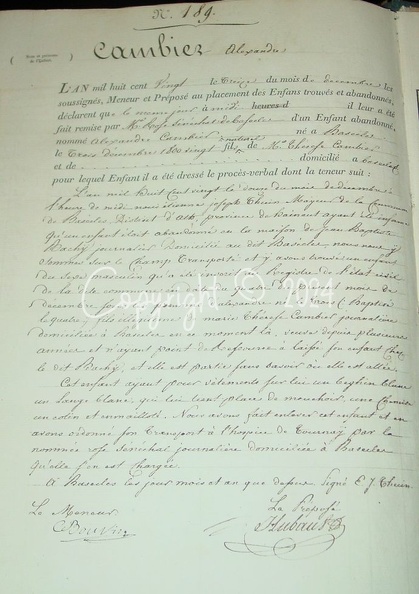 N.° 189.
Cambier Alexandre
L'AN mil huit cent Vingt le treize du mois de décembre les
soussignés, Meneur et Préposé au placement des Enfans trouvés et abandonnés,
déclarent que le même jour à midi heures d il leur a été
fait remise par d'un Enfant abandonné,
nommé Alexandre Cambier né à Basecles
le trois décembre 1800 vingt fil de Thérèse Cambier
et de domicilié à
pour lequel Enfant il a été dressé le procès-verbal dont la teneur suit :
L'an mil huit cent vingt le douze du mois de décembre à
l'heure de midi, nous Joseph Mayeur de la Commune
de Basecles District d'Ath, province de Hainaut ayant été
qu'un enfant étoit abandonné en la maison de Jean Baptiste
Bachy journalier Domicilié au dit Basecles, nous nous y
sommes sur le Champ Transporté et y avons trouvé un enfant
du Sexe masculin qu'a été inscrit au Registre de l'état civil
de la dite commune en date du quatre du mois de
décembre
le quatre, fils illégitime de marie Thérèse Cambier journalière
domiciliée à en ce moment là, depuis plusieurs
années et n'ayant point de à laissé son enfant chez
le dit Bachy, et elle est partie sans savoir où elle est allée.
Cet enfant ayant pour vêtements sur lui un béguin blanc
un lange blanc, qui lui tient place de mouchoir, une Chemise
un et emmailloté. Nous avons fait enlever cet enfant et en
avons ordonné son Transport à l'hospice de Tournay par la
nommée rose Sénéchal journalière domiciliée à Basecles
qu'elle s'en est chargée.
A Basecles les jour mois et an que dessus Signé
Le Meneur
Le Préposé
Hubaut
Copyright © 2004